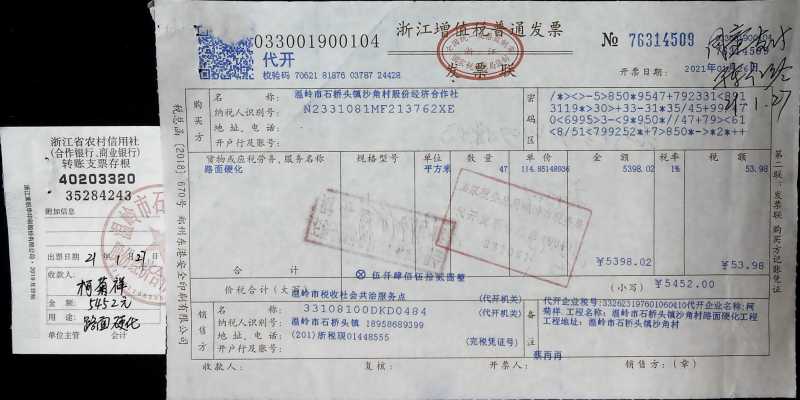 浙江增值税普通发票
033001900104
№ 76314509
033001900104
76314509
代开
发票联
校验码 70621 81876 03787 24428
开票日期:
1.27
购买方
名 称: 温岭市石桥头镇沙角村股份经济合作社
纳税人识别号: N2331081MF213762XE
地 址、电 话:
开户行及账号:
密码区
货物或应税劳务、服务名称 规格型号 单位 数量 单价 金额 税率 税
路面硬化 平方米 47 114.85148936 5398.02 1% 53.98
合 计 ¥5398.02 ¥53.98
价税合计(大写) ⊗ 伍仟肆佰伍拾贰圆整 (小写) ¥5452.00
销售方
名 称: 温岭市税收社会共治服务点 (代开机关)
纳税人识别号: 33108100DKD0484 (代开机关)
地 址、电 话: 温岭市石桥头镇 18958689399
开户行及账号: (201)浙税现01448555 (完税凭证号)
备注
代开企业税号:332623197601060410代开企业名称:柯
菊样 工程名称:温岭市石桥头镇沙角村路面硬化工程
工程地址:温岭市石桥头镇沙角村
蔡冉冉
收款人: 复核: 开票人: 销售方:(章)
第二联:发票联 购买方记账凭证
浙江省农村信用社
(合作银行、商业银行)
转账支票存根
40203320
35284243
附加信息
出票日期 21年 1月 27日
收款人:
柯菊祥
金 额: 5452元
用 途: 路面硬化
单位主管 会计